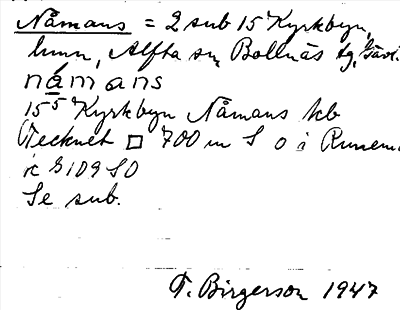 Nåmans = 2 sub 15 Kyrkbyn,
hmn, Alfta sn Bollnäs tg, Gävl.
nåmans
15⁵ Kyrkbyn Nåmans hb
Tecknet □ 700 m S o i Runem.
ic G109 SO
Se sub.
T. Birgerson 1947